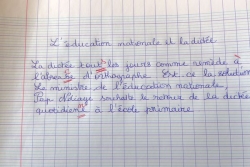 L'éducation nationale et la dictée
La dictée tout les jours comme remède à
l'absence d'orthographe. Est-ce la solution
Le ministre de l'éducation nationale,
Pap Ndiaye souhaite le retour de la dictée
quotidienne à l'école primaire